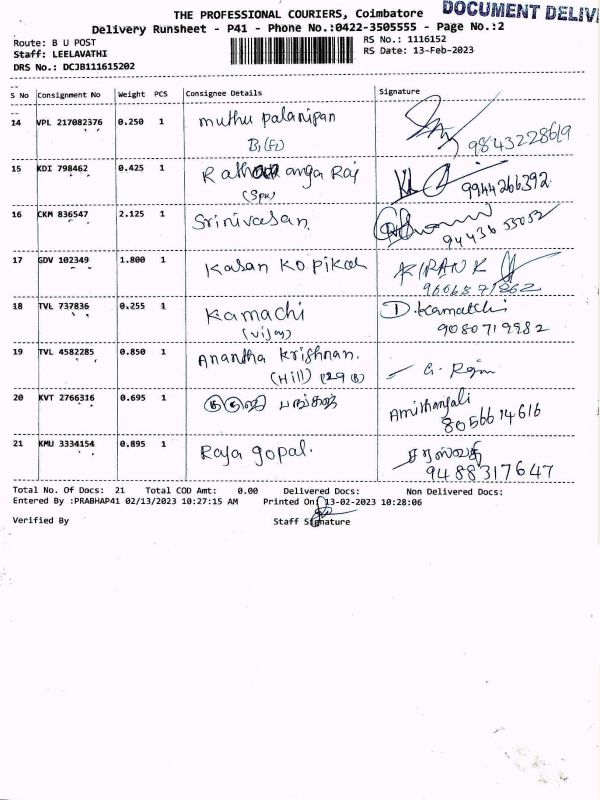 THE PROFESSIONAL COURIERS, Coimbatore
DOCUMENT DELIV
Delivery Runsheet - P41 - Phone No.:0422-3505555 - Page No.:2
Route: B U POST
RS No.: 1116152
Staff: LEELAVATHI
RS Date: 13-Feb-2023
DRS No.: DCJB111615202
S No Consignment No Weight PCS Consignee Details Signature
14 VPL 217082376 0.250 1 Muthu palanipan
9843228619
15 KDI 798462 0.425 1 anga Raj
9944266392
16 CKM 836547 2.125 1 Srinivasan.
94436 55052
17 GDV 102349 1.800 1 Kalan KIRAN K
18 TVL 737836 0.255 1 Kamachi D. Kamatchi
(Vijay) 9080719982
19 TVL 4582285 0.850 1 Anantha Krishnan.
(Hill) (29 B)
20 KVT 2766316 0.695 1
8056614616
21 KMU 3334154 0.895 1 Raja gopal. சரஸ்வதி
9488317647
Total No. Of Docs: 21 Total COD Amt: 0.00 Delivered Docs: Non Delivered Docs:
Entered By :PRABHAP41 02/13/2023 10:27:15 AM Printed On: 13-02-2023 10:28:06
Verified By Staff Signature